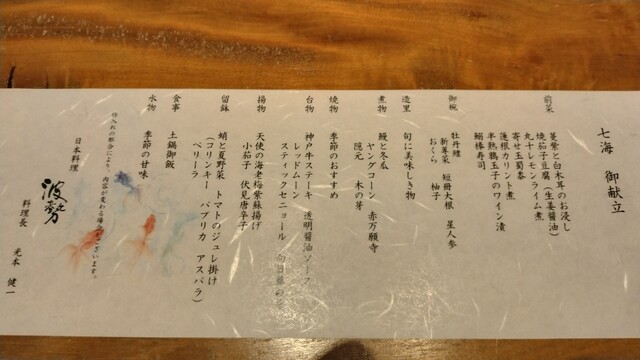 七海　御献立
前菜
蔓紫と白木耳のお浸し
焼茄子豆腐（生姜醤油）
丸十レモンライム煮
寄せ玉蜀黍
蓮根カリント煮
半熟鶉玉子のワイン漬
鰯棒寿司
御椀
牡丹鱧
新蓴菜　短冊大根　星人参
おくら　柚子
造里
旬に美味しき物
煮物
鰻と冬瓜
ヤングコーン　赤万願寺
隠元　木の芽
焼物
季節のおすすめ
台物
神戸牛ステーキ　透明醤油ソース
レッドムーン
スティックセニョール
揚物
天使の海老梅紫蘇揚げ
小茄子　伏見唐辛子
留鉢
蛸と夏野菜　トマトのジュレ掛け
（コリンキー　パプリカ　アスパラ）
ベリーラ
食事
土鍋御飯
水物
季節の甘味
仕入れの都合により　内容が変わる場合ございます。
日本料理
波勢
料理長　光本　健一